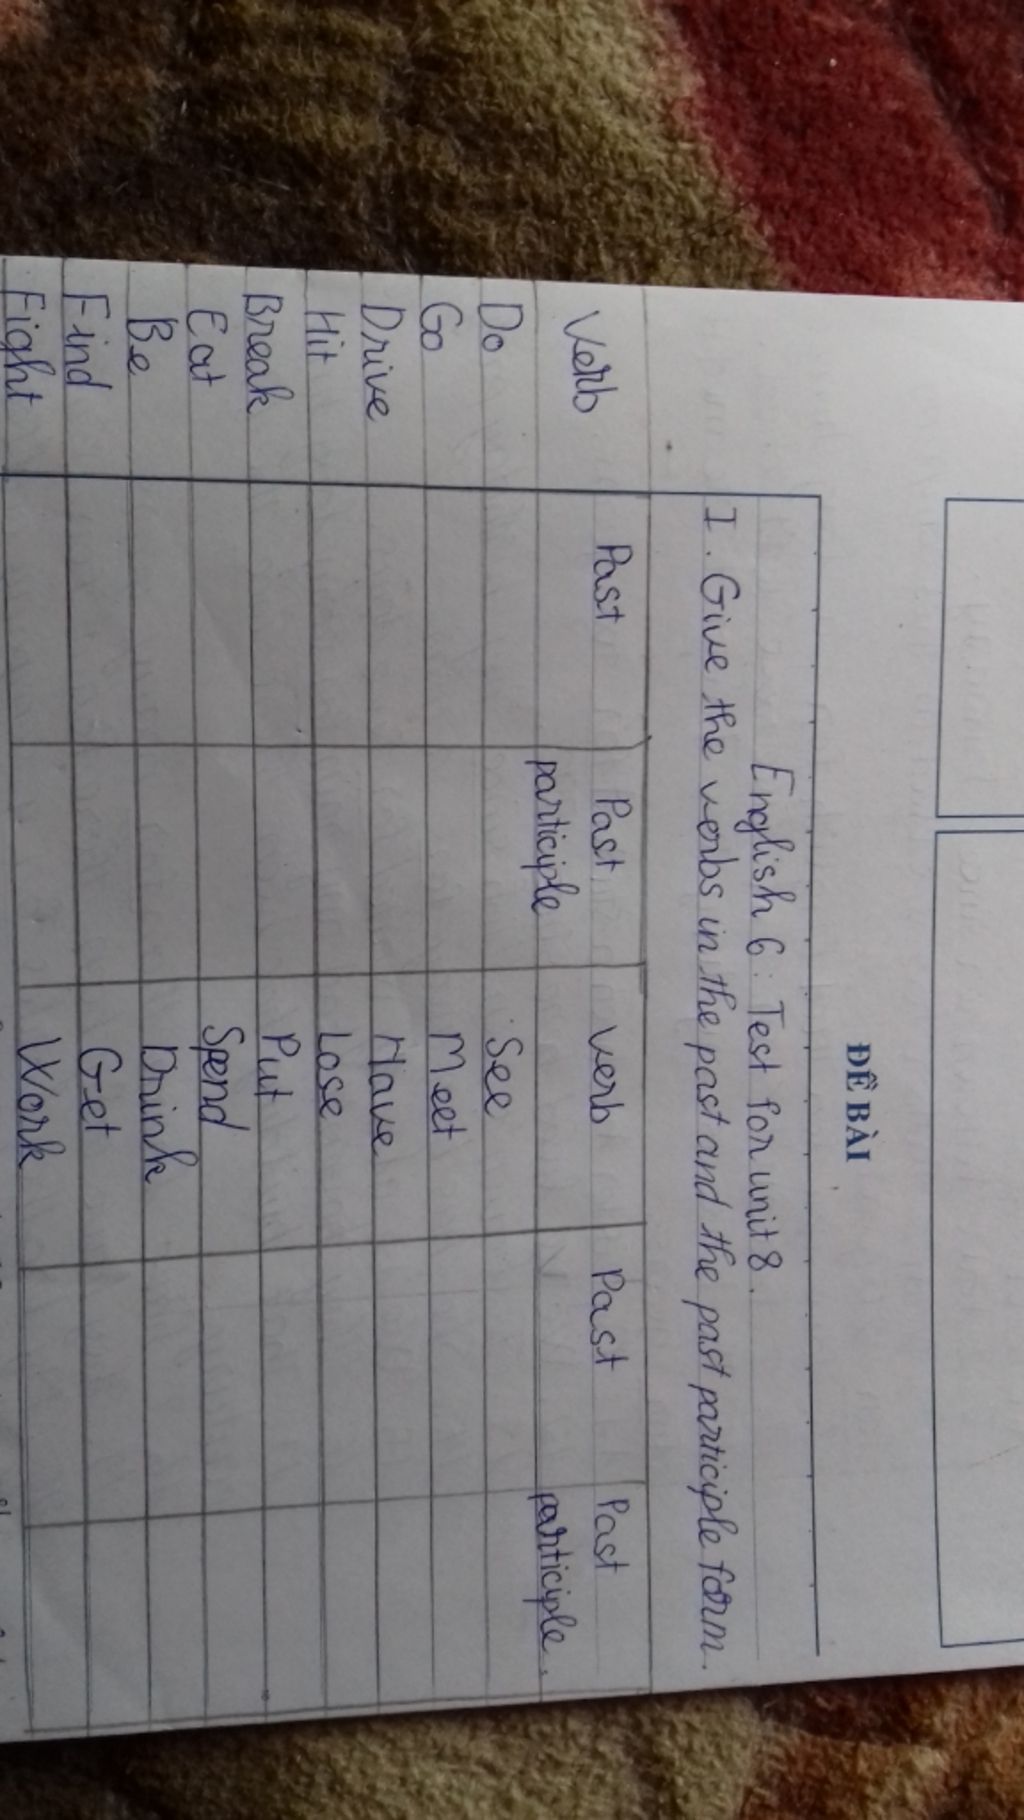 ĐỀ BÀI
English 6: Test for unit 8.
I. Give the verbs in the past and the past participle form.
Verb Past Past participle Verb Past Past participle.
Do See
Go Meet
Drive Have
Hit Lose
Break Put
Eat Spend
Be Drink
Find Get
Fight Work